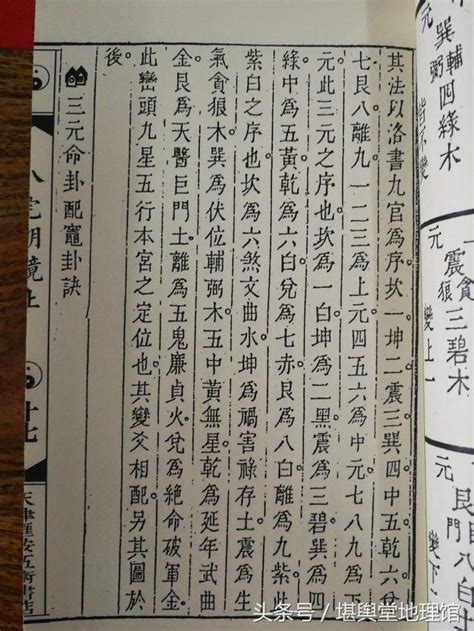 元
巽輔弼四綠木
元
震貪狼三碧木
變上一
元
門
其法以洛書九官為序坎一坤二震三巽四中五乾六兌
七艮八離九一二三為上元四五六為中元七八九為下
元此三元之序也坎為一白坤為二黑震為三碧巽為四
綠中為五黃乾為六白兌為七赤艮為八白離為九紫此
紫白之序也坎為六煞文曲水坤為禍害祿存土震為生
氣貪狼木巽為伏位輔弼木五中黃無星乾為延年武曲
金艮為天醫巨門土離為五鬼廉貞火兌為絕命破軍金
此巒頭九星五行本宮之定位也其變爻相配另其圖於
後
三元命卦配竈卦訣
八宅明鏡上
廿七
头条号/堪舆堂地理馆